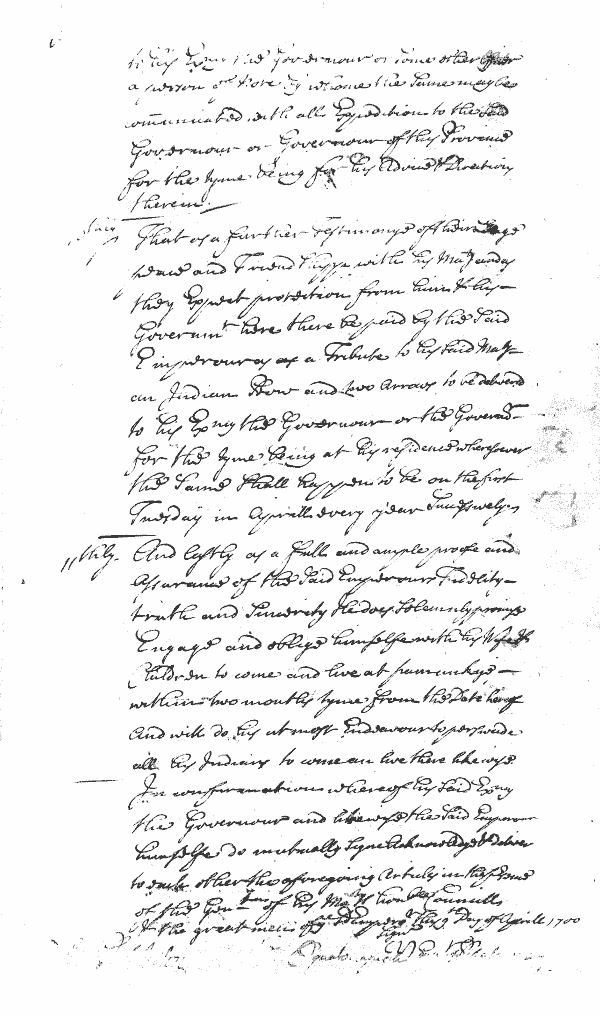 to his Exncy the Governour or some other Officer
a person of Note by whome the same may be
communicated with all Expedition to the Said
Governour or Governour of this Province
for the tyme being for his Advice & Direction
therein
That as a further testimony of their
peace and Friendshipp with his Maty and as
they Expect protection from him & his
Governmt here there be paid by the Said
Emperour as a Tribute to his Said Maty
an Indian Bow and two Arrows to be delivered
to his Exncy the Governour or the Governr
for the tyme being at his residence wheresoever
the Same Shall happen to be on the first
Tuesday in Aprill every year Successively
11thly. And lastly as a full and ample proofe and
Assurance of the Said Emperours Fidelity
truth and Sincerity He does Solemnly promise
Engage and oblige himselfe with his Wife &
Children to come and live at pamunkye
within two months tyme from the Date hereof
And will do his utmost Endeavour to perswade
all his Indians to come an live there likewise.
In confirmation whereof his Said Exncy
the Governour and likewise the Said Emperour
himselfe do mutually Signe Acknowledge & deliver
to each other the aforegoing Articles in the
of the of his Matys honble Councill
& the great men of ye sd Emperor this Day of Aprill 1700